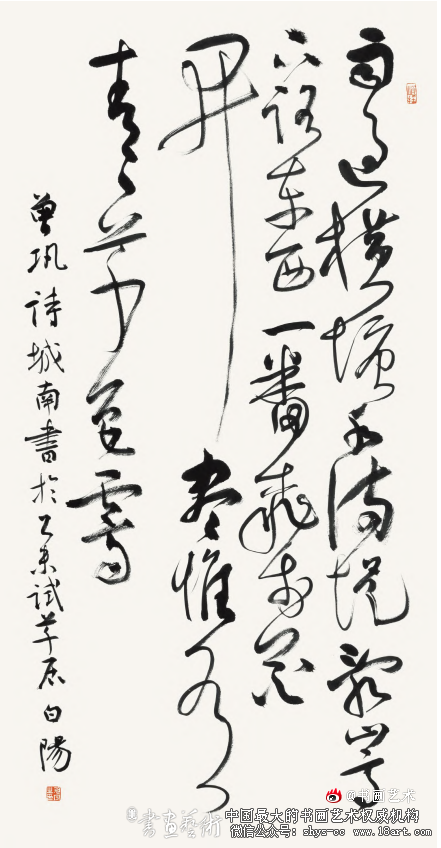 雨过横塘水满堤乱山高
下路东西一番桃李花
开尽惟有
青青草色齐
曾巩詩城南書於乙未试草居白陽
@书画艺术
®書畫藝術
中国最大的书画艺术权威机构
微信公众号:shys-cc www.18art.com